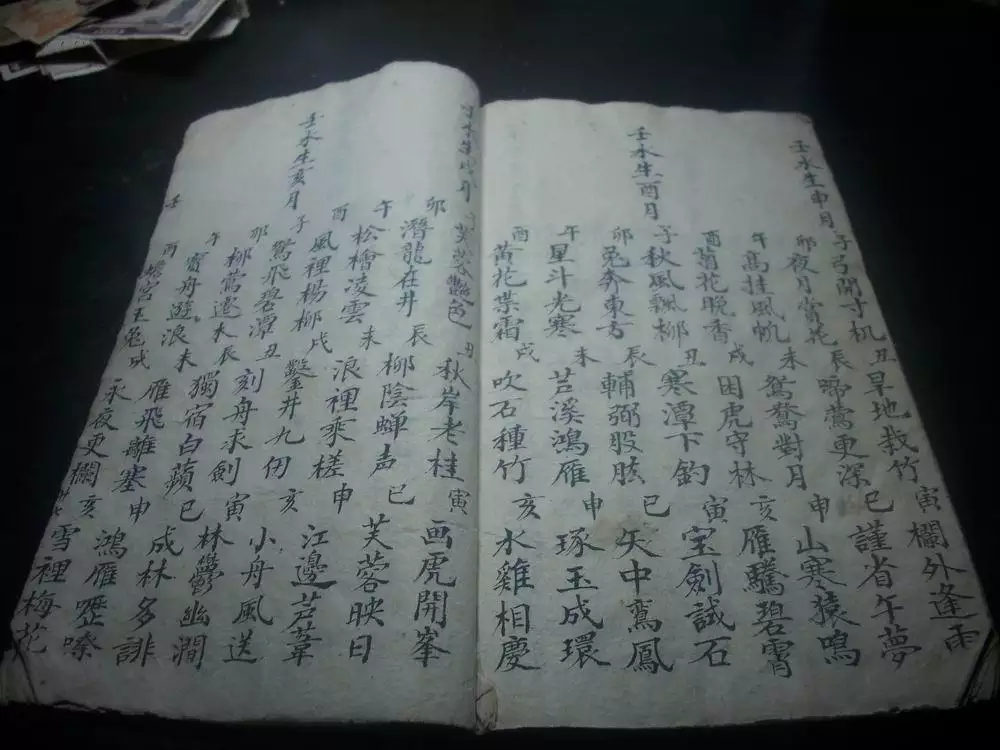 壬水生申月
子弓開寸机 丑旱地栽竹 寅欄外逢雨
卯夜月賞花 辰啼鶯更深 巳謹省午夢
午高挂風帆 未鴛鴦對月 申山寒猿鳴
酉菊花晚香 戌困虎守林 亥雁騰碧霄
壬水生酉月
子秋風飄柳 丑寒潭下釣 寅宝劍試石
卯兔奔東方 辰輔弼股肱 巳矢中鸞鳳
午星斗光寒 未芦溪鴻雁 申琢玉成環
酉黃花棠霜 戌吹石種竹 亥水雞相慶
壬水生戌月
芙蓉艷色 丑秋岸老桂 寅画虎開峯
卯潛龍在井 辰柳陰蟬声 巳芙蓉映日
午松檜凌雲 未浪裡乘槎 申江邊芦葦
酉風裡楊柳 戌鑿井九仞 亥小舟風送
壬水生亥月
子鴛飛碧潭 丑刻舟求劍 寅林鬱幽澗
卯柳鶯遷木 辰獨宿白蘋 巳成林多誹
午寶舟遊浪 未雁飛離塞 申鴻雁嚦嗦
酉蟾宮玉兔 戌永夜更欄 亥雪裡梅花
壬